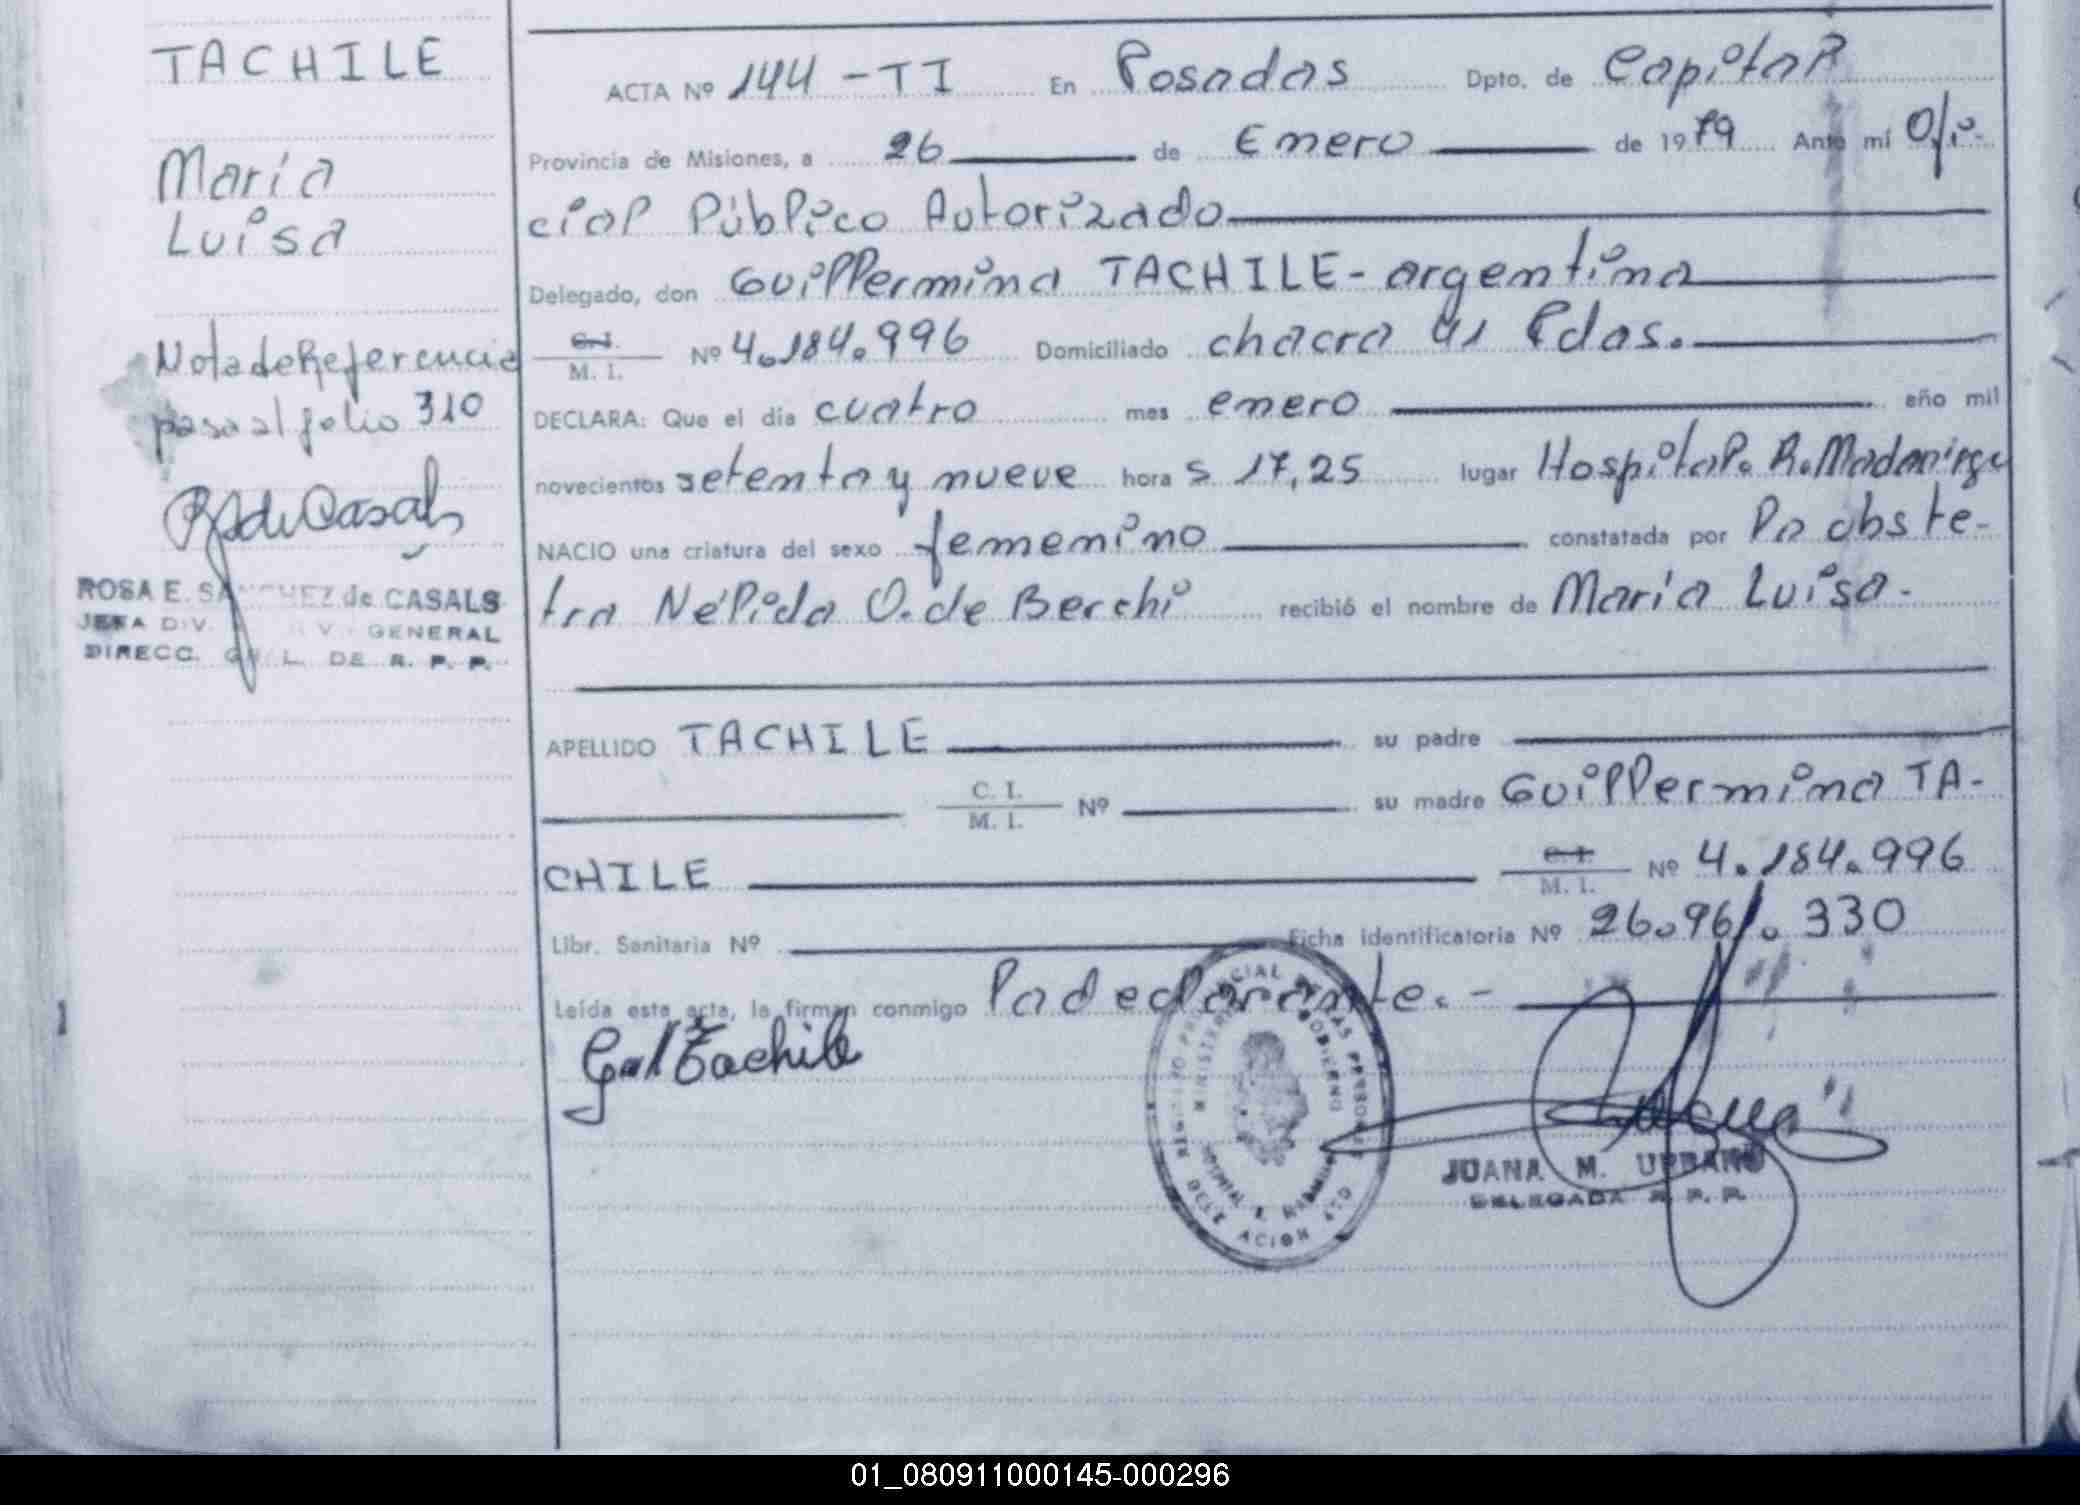 TACHILE
María
Luisa
Nota de Referencia
pasa al folio 310
ROSA E. SANCHEZ de CASALS
JEFA DIV. GENERAL
DIRECC. GRAL. DE R. P. P.
ACTA Nº 144-TI En Posadas Dpto. de Capital
Provincia de Misiones, a 26 de Enero de 1979 Ante mí Ofi-
cial Público Autorizado
Delegado, don Guillermina TACHILE - argentina
C.I.
M. I. Nº 4.184.996 Domiciliado chacra 41 Pdas.
DECLARA: Que el día cuatro mes enero año mil
novecientos setenta y nueve hora s 17,25 lugar Hospital. R. Madariaga
NACIO una criatura del sexo femenino constatada por la obste-
tra Nélida O. de Berchi recibió el nombre de María Luisa.
APELLIDO TACHILE su padre
C. I.
M. I. Nº su madre Guillermina TA-
CHILE C.I.
M. I. Nº 4.184.996
Libr. Sanitaria Nº Ficha identificatoria Nº 26.961.330
Leída esta acta, la firman conmigo la declarante. -
Tachile
JUANA M. URBANO
DELEGADA R. P. P.
01_080911000145-000296